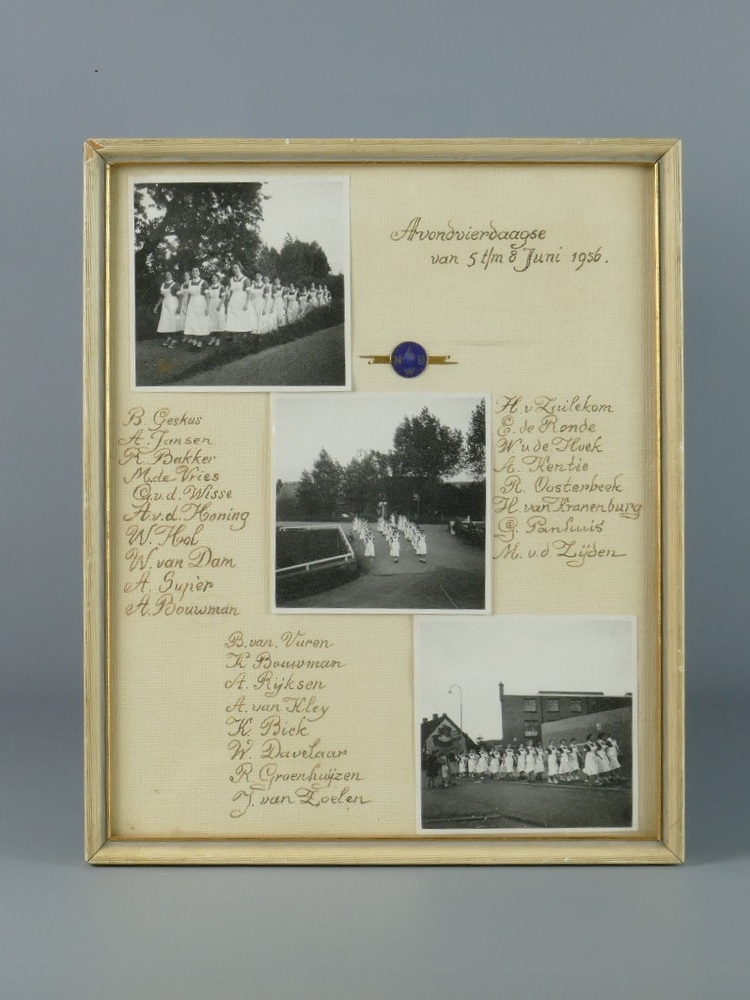 Avondvierdaagse
van 5 t/m 8 Juni 1956.
N E
W
B. Geskus
A. Jansen
R. Bakker
M. de Vries
G. v. d. Wisse
A. v. d. Honing
W. Hol
W. van Dam
A. Supèr
A. Bouwman
H. v Zuilekom
E. de Ronde
W. v. de Hoek
A. Kentie
R. Oosterbeek
H. van Kranenburg
G. Panhuis
M. v. d Zijden
B. van. Vuren
K Bouwman
A. Rijksen
A. van Kley
K. Bick
W. Davelaar
R. Groenhuijzen
J. van Zoelen